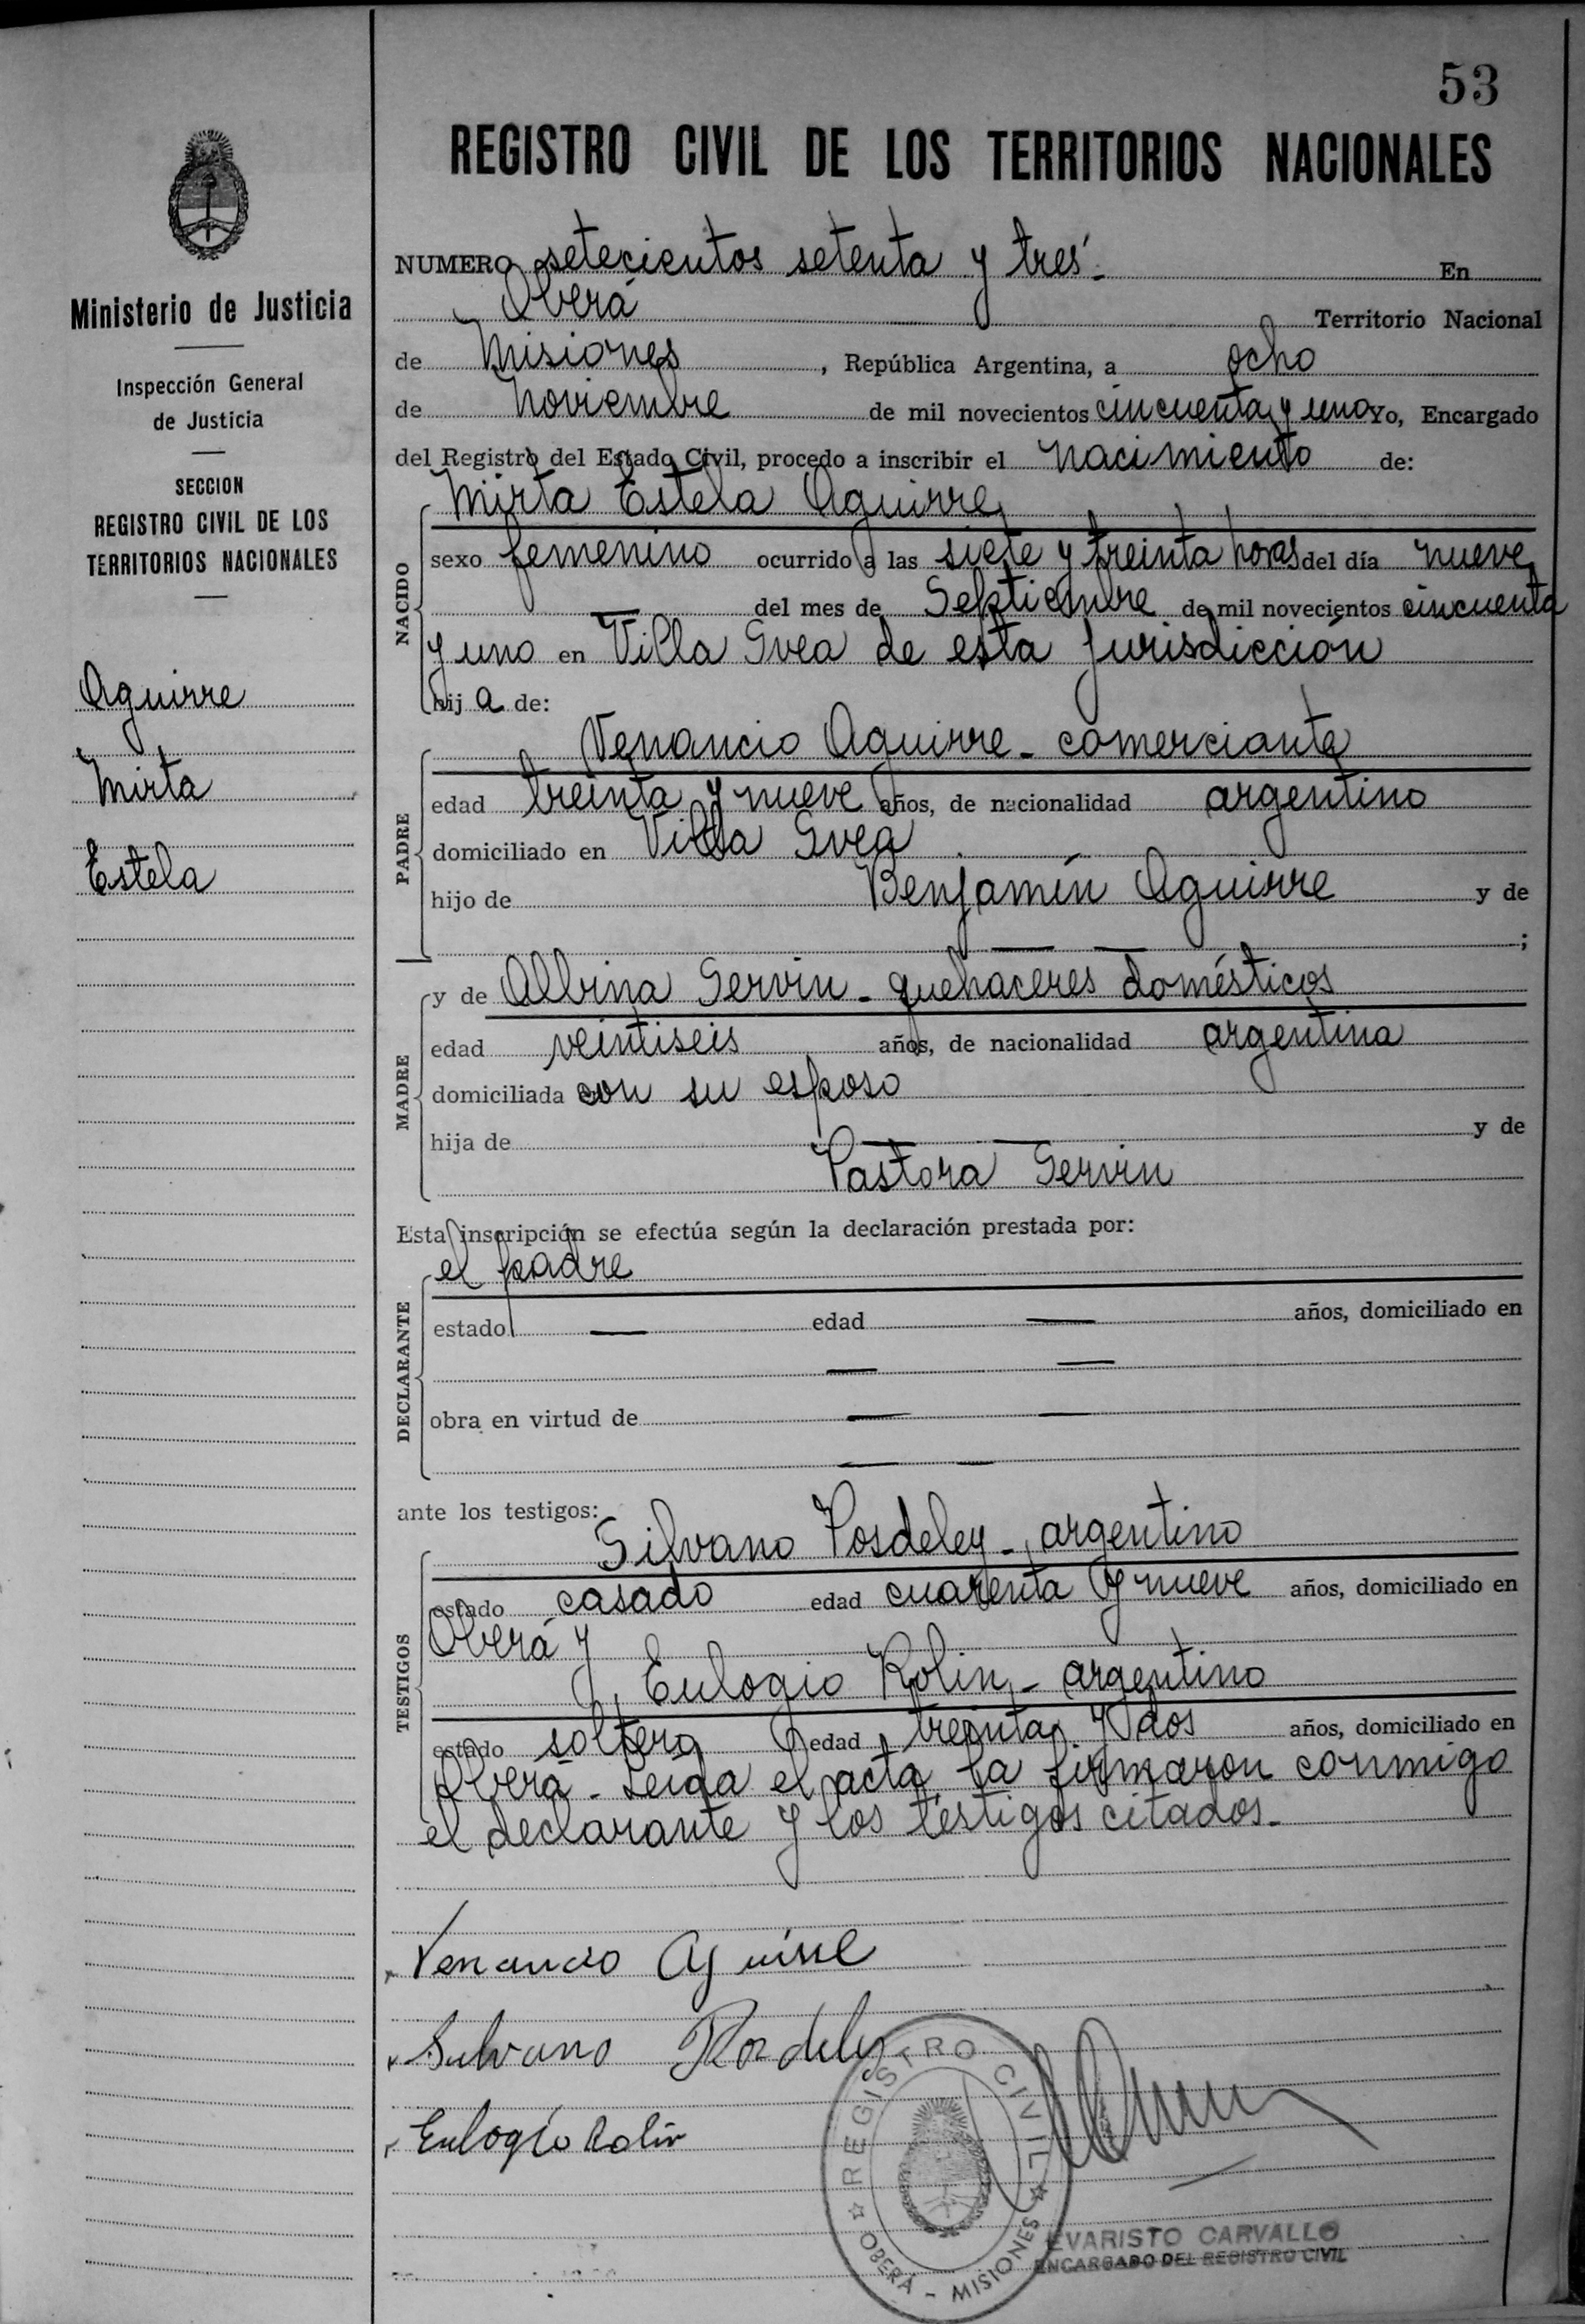 53
REGISTRO CIVIL DE LOS TERRITORIOS NACIONALES
Ministerio de Justicia
Inspección General
de Justicia
SECCION
REGISTRO CIVIL DE LOS
TERRITORIOS NACIONALES
Aguirre
Mirta
Estela
NUMERO setecientos setenta y tres.- En
Oberá Territorio Nacional
de Misiones, República Argentina, a ocho
de Noviembre de mil novecientos cincuenta y uno Yo, Encargado
del Registro del Estado Civil, procedo a inscribir el nacimiento de:
NACIDO
Mirta Estela Aguirre
sexo femenino ocurrido a las siete y treinta horas del día nueve
— del mes de Septiembre de mil novecientos cincuenta
y uno en Villa Svea de esta jurisdicción
hij a de:
PADRE
Venancio Aguirre - comerciante
edad treinta y nueve años, de nacionalidad argentino
domiciliado en Villa Svea
hijo de Benjamín Aguirre y de
— — ;
MADRE
y de Albina Servin - quehaceres domésticos
edad veintiseis años, de nacionalidad argentina
domiciliada con su esposo
hija de — — y de
Pastora Servin
Esta inscripción se efectúa según la declaración prestada por:
DECLARANTE
el padre
estado — edad — años, domiciliado en
— —
obra en virtud de — —
— —
ante los testigos:
TESTIGOS
Silvano Posdeley - argentino
estado casado edad cuarenta y nueve años, domiciliado en
Oberá y
Eulogio Rolin - argentino
estado soltero edad treinta y dos años, domiciliado en
Oberá - Leída el acta, la firmaron conmigo
el declarante y los testigos citados.-
Venancio Aguirre
Silvano Posdeley
Eulogio Rolin
REGISTRO CIVIL
OBERÁ - MISIONES
EVARISTO CARVALLO
ENCARGADO DEL REGISTRO CIVIL